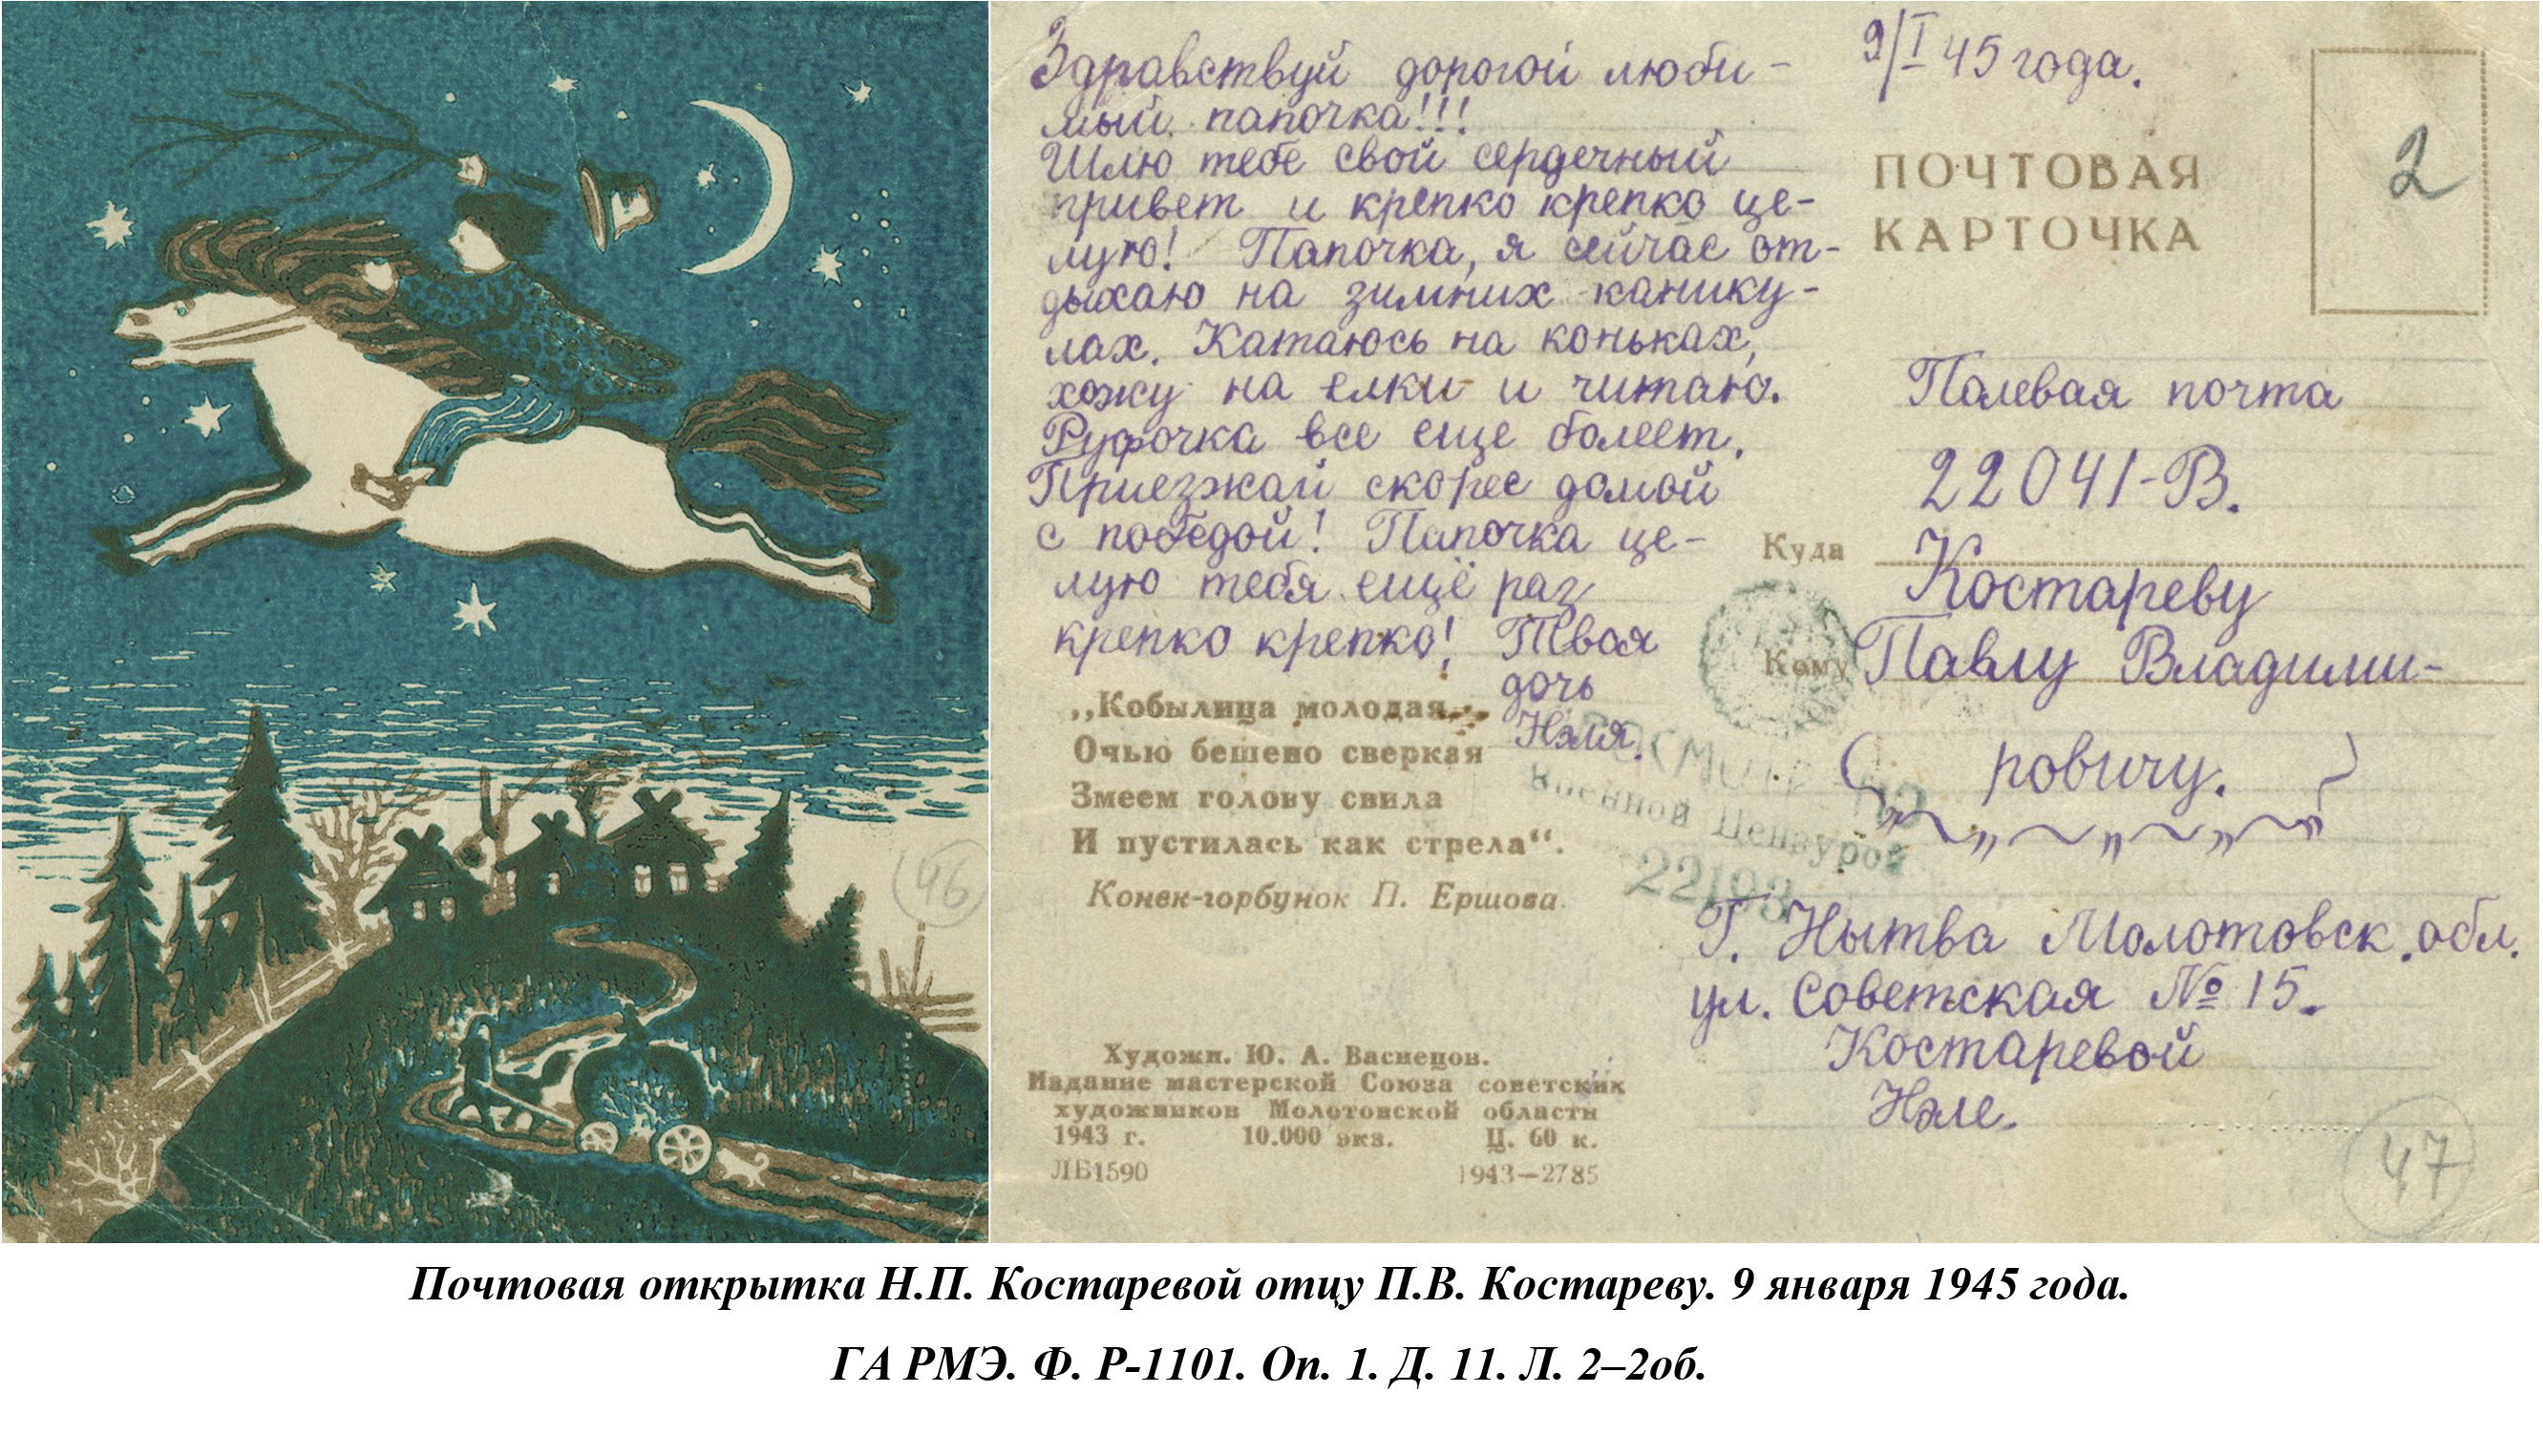 Здравствуй дорогой люби-
мый папочка!!!
Шлю тебе свой сердечный
привет и крепко крепко це-
лую! Папочка, я сейчас от-
дыхаю на зимних канику-
лах. Катаюсь на коньках,
хожу на елки и читаю.
Руфочка все еще болеет.
Приезжай скорее домой
с победой! Папочка це-
лую тебя ещё раз
крепко крепко! Твоя
дочь
Нэля.
„Кобылица молодая,
Очью бешено сверкая
Змеем голову свила
И пустилась как стрела“.
Конек-горбунок П. Ершова
Художн. Ю. А. Васнецов.
Издание мастерской Союза советских
художников Молотовской области
1943 г. 10.000 экз. Ц. 60 к.
ЛБ1590 1943—2785
9/I 45 года.
ПОЧТОВАЯ
КАРТОЧКА
2
Полевая почта
22041-В.
Куда
Костареву
Кому Павлу Владими-
ровичу.
Военной Цензурой
22193
Г. Нытва Молотовск. обл.
ул. Советская № 15.
Костаревой
Нэле.
46
47
Почтовая открытка Н.П. Костаревой отцу П.В. Костареву. 9 января 1945 года.
ГА РМЭ. Ф. Р-1101. Оп. 1. Д. 11. Л. 2–2об.